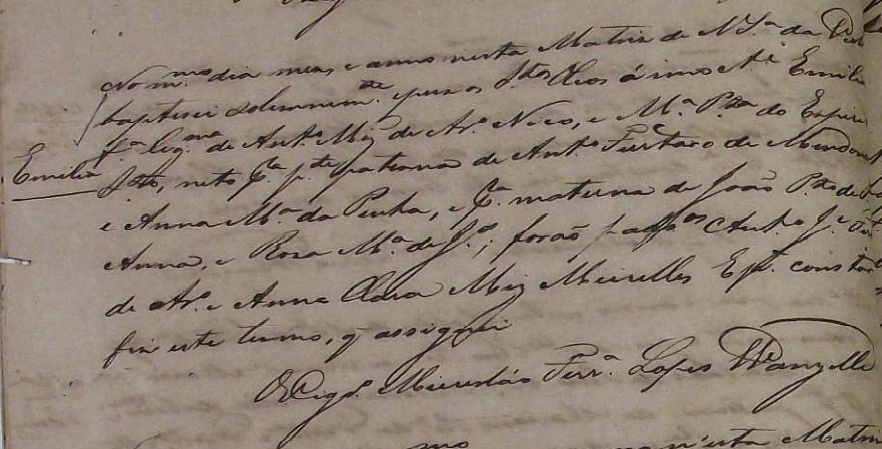 No m.mo dia mez, e anno nesta Matriz de N. S.ª da
baptisei solemnem.te e puz os S.tos Oleos á innoc.e Emilia
Emilia
f.ª leg.ma de Ant.º Miz de Ar.º Nico, e M.ª P.ta do Espir
S.to, neto p.ª p.te paterna de Ant.º Furtado de Mendon
e Anna M.ª da Penha, e p.ª materna de João P.to de
Anna, e Rosa M.ª de J.s; forão pad.os Ant.º J.e
de Ar.º e Anna Clara Miz Meirelles E p.ª constar
fiz este termo, q assignei
O Vig.º Ferr.ª Lopes Wanzelle
mo n'esta Matri